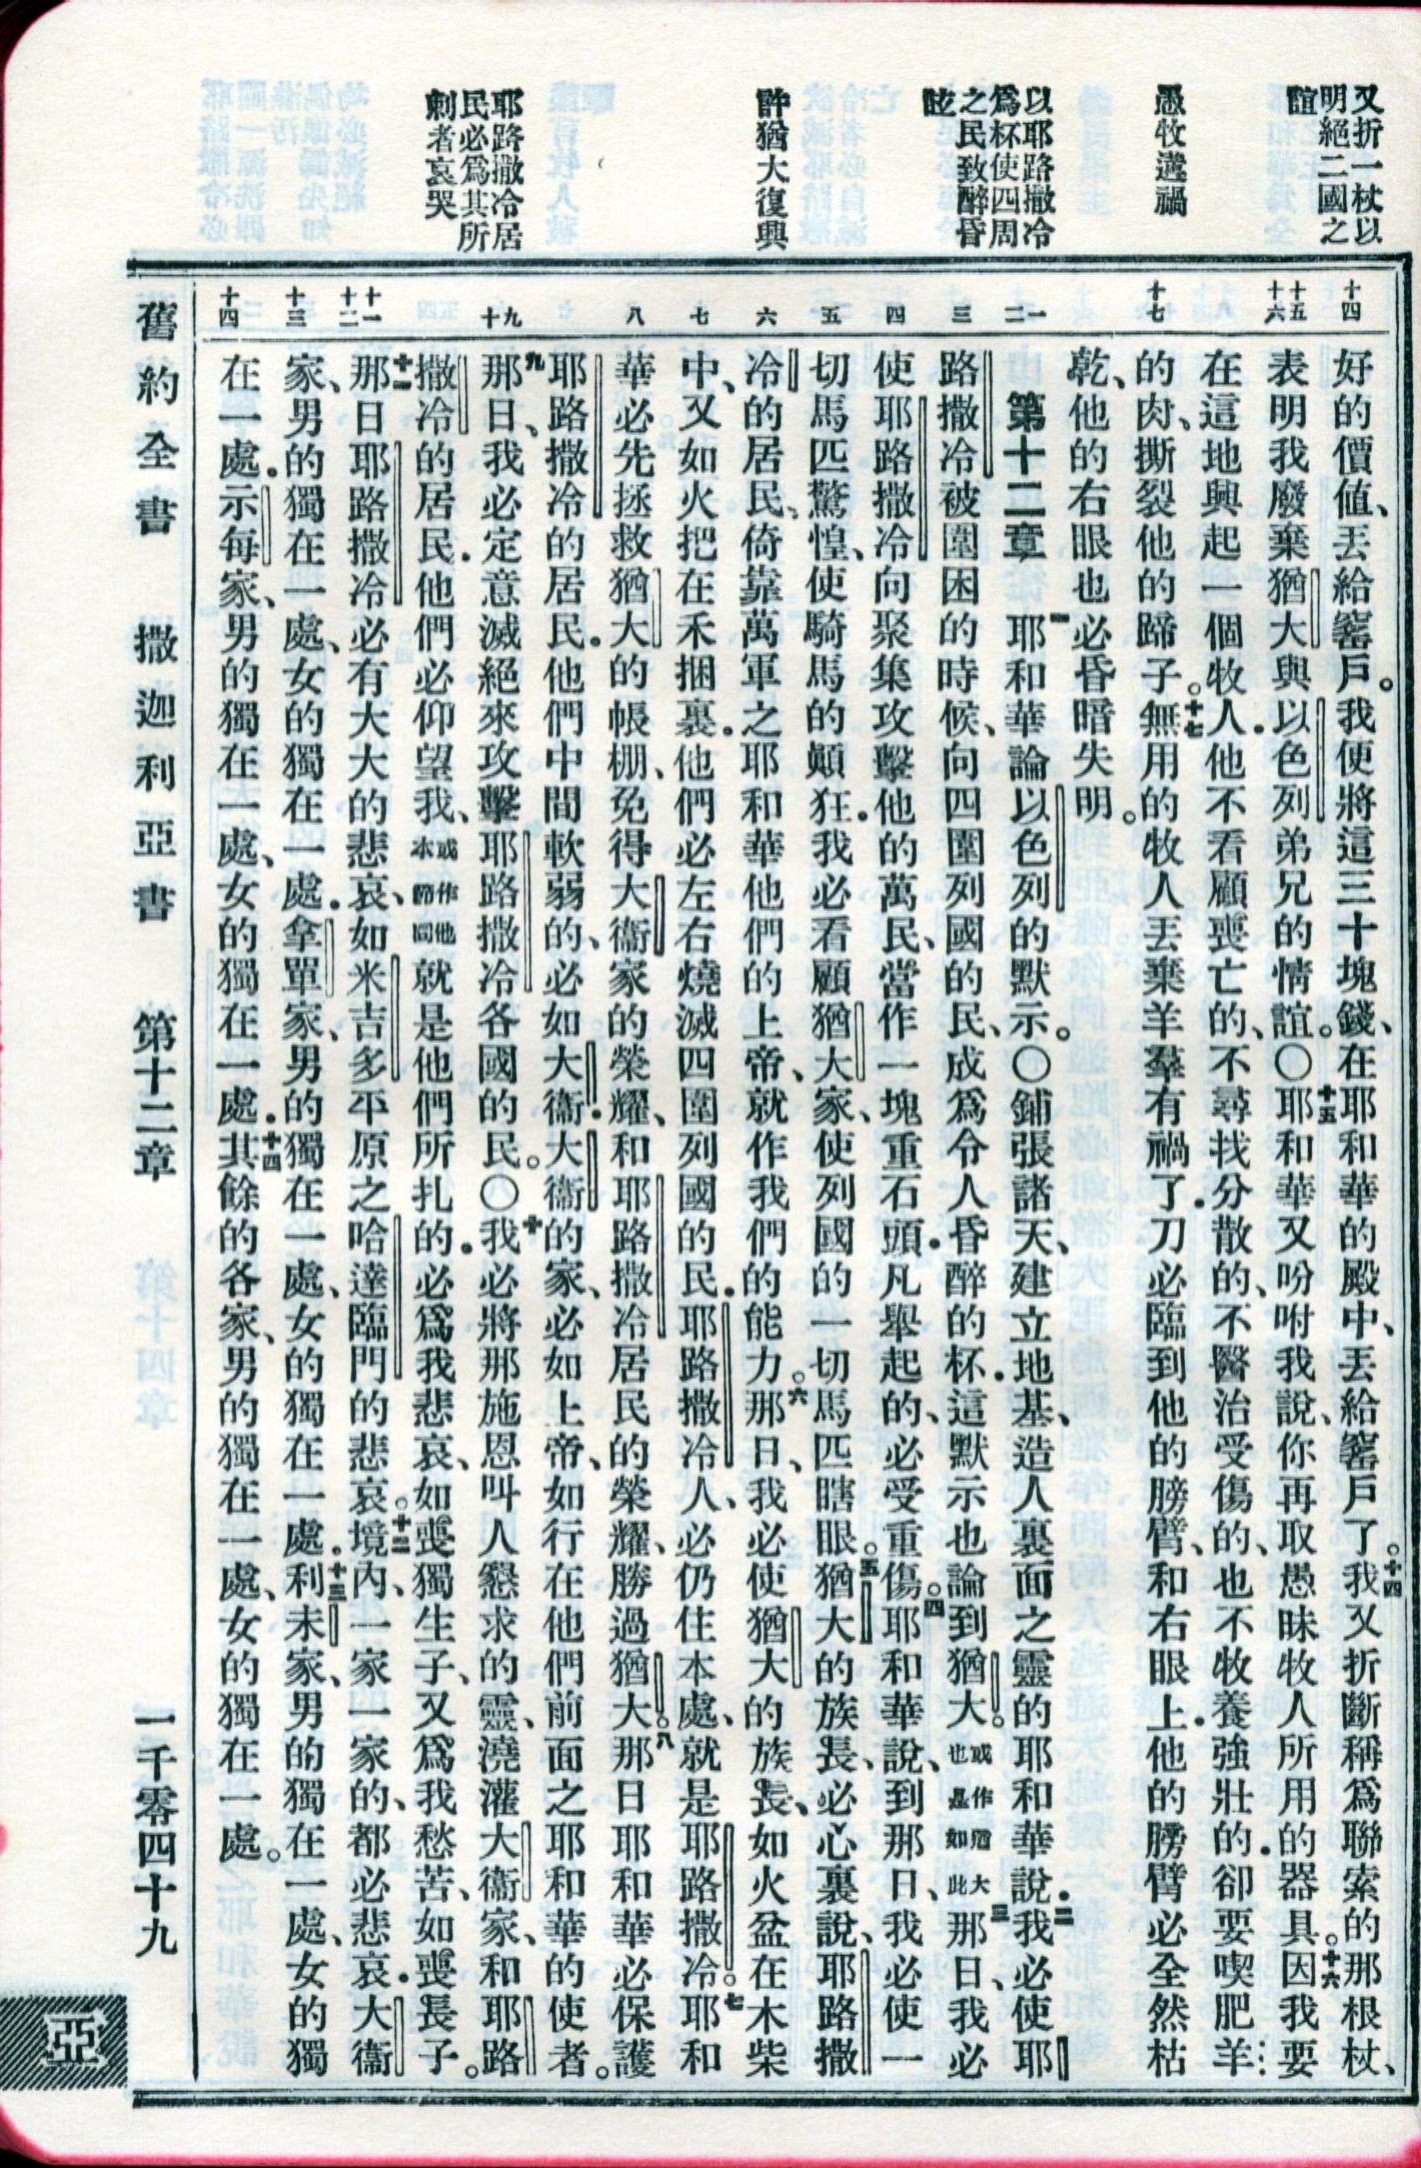 又折一杖以
明絕二國之
誼
愚牧遘禍
以耶路撒冷
爲杯使四周
之民致醉昏
眩
許猶大復興
耶路撒冷居
民必爲其所
刺者哀哭
十四
十五
十六
十七
一
二
三
四
五
六
七
八
九
十
十一
十二
十三
十四
好的價値、丟給窰戶。我便將這三十塊錢、在耶和華的殿中、丟給窰戶了。十四我又折斷稱爲聯索的那根杖、
表明我廢棄猶大與以色列弟兄的情誼。〇十五耶和華又吩咐我說、你再取愚昧牧人所用的器具。十六因我要
在這地興起一個牧人．他不看顧喪亡的、不尋找分散的、不醫治受傷的、也不牧養強壯的．卻要喫肥羊
的肉、撕裂他的蹄子。十七無用的牧人丟棄羊羣有禍了．刀必臨到他的膀臂、和右眼上．他的膀臂必全然枯
乾、他的右眼也必昏暗失明。
第十二章 一耶和華論以色列的默示。〇鋪張諸天、建立地基、造人裏面之靈的耶和華說．二我必使耶
路撒冷被圍困的時候、向四圍列國的民、成爲令人昏醉的杯．這默示也論到猶大。或作猶大也是如此三那日、我必
使耶路撒冷向聚集攻擊他的萬民、當作一塊重石頭．凡舉起的、必受重傷。四耶和華說、到那日、我必使一
切馬匹驚惶、使騎馬的顚狂．我必看顧猶大家、使列國的一切馬匹瞎眼。五猶大的族長、必心裏說、耶路撒
冷的居民、倚靠萬軍之耶和華他們的上帝、就作我們的能力。六那日、我必使猶大的族長、如火盆在木柴
中、又如火把在禾捆裏．他們必左右燒滅四圍列國的民．耶路撒冷人、必仍住本處、就是耶路撒冷。七耶和
華必先拯救猶大的帳棚、免得大衞家的榮耀、和耶路撒冷居民的榮耀、勝過猶大。八那日耶和華必保護
耶路撒冷的居民．他們中間軟弱的、必如大衞．大衞的家、必如上帝、如行在他們前面之耶和華的使者。
九那日、我必定意滅絕來攻擊耶路撒冷各國的民。〇十我必將那施恩叫人懇求的靈、澆灌大衞家、和耶路
撒冷的居民．他們必仰望我、或作他本節同就是他們所扎的．必爲我悲哀、如喪獨生子、又爲我愁苦、如喪長子。
十一那日、耶路撒冷必有大大的悲哀、如米吉多平原之哈達臨門的悲哀。十二境內、一家一家的、都必悲哀．大衞
家、男的獨在一處、女的獨在一處．拿單家、男的獨在一處、女的獨在一處．十三利未家、男的獨在一處、女的獨
在一處．示每家、男的獨在一處、女的獨在一處．十四其餘的各家、男的獨在一處、女的獨在一處。
舊約全書 撒迦利亞書 第十二章 一千零四十九
亞